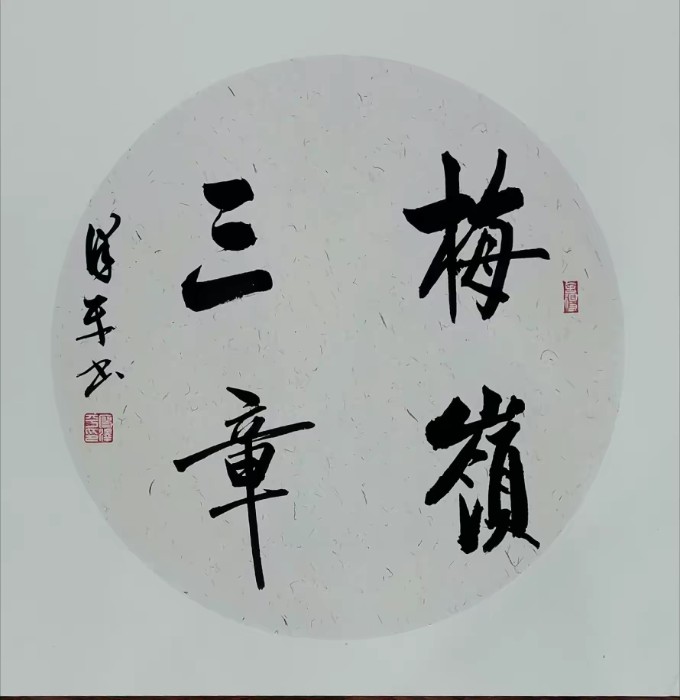 梅嶺
三章
泽平书